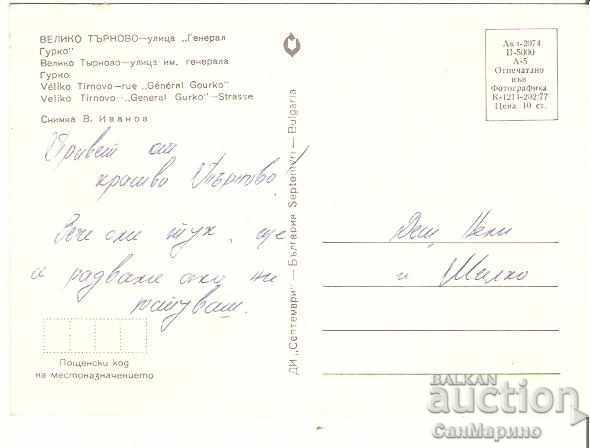 ВЕЛИКО ТЪРНОВО—улица „Генерал
Гурко"
Велико Тырново—улица им. генерала
Гурко
Véliko Tirnovo—rue „Général Gourko"
Veliko Tirnovo—„General Gurko"—Strasse
Снимка В. Иванов
Привет от
красиво Търново!
Вече сме тук, ще
се радваме ако ни
гостуваш.
Пощенски код
на местоназначението
ДИ „Септември" — България Septemvri — Bulgaria
Акл-2074
П-5000
А-5
Отпечатано
във
Фотографика
К-1211-202/77
Цена 10 ст.
Деш Нели
и Милко
BALKAN
auction
СанМарино